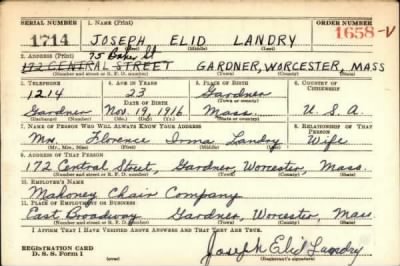 SERIAL NUMBER 1. NAME (Print) ORDER NUMBER
1714 JOSEPH ELID LANDRY 1658-V
(First) (Middle) (Last)
2. ADDRESS (Print) 75 Baker St
172 CENTRAL STREET GARDNER, WORCESTER, MASS
(Number and street or R. F. D. number) (Town) (County) (State)
3. TELEPHONE 4. AGE IN YEARS 5. PLACE OF BIRTH 6. COUNTRY OF CITIZENSHIP
1214 23 Gardner
DATE OF BIRTH (Town or county)
Gardner Nov. 19, 1916 Mass. U. S. A.
(Exchange) (Number) (Mo.) (Day) (Yr.) (State or country)
7. NAME OF PERSON WHO WILL ALWAYS KNOW YOUR ADDRESS 8. RELATIONSHIP OF THAT PERSON
Mrs. Florence Irma Landry Wife
(Mr., Mrs., Miss) (First) (Middle) (Last)
9. ADDRESS OF THAT PERSON
172 Central Street, Gardner Worcester, Mass.
(Number and street or R. F. D. number) (Town) (County) (State)
10. EMPLOYER'S NAME
Mahoney Chair Company
11. PLACE OF EMPLOYMENT OR BUSINESS
East Broadway Gardner, Worcester, Mass
(Number and street or R. F. D. number) (Town) (County) (State)
I AFFIRM THAT I HAVE VERIFIED ABOVE ANSWERS AND THAT THEY ARE TRUE.
REGISTRATION CARD
D. S. S. FORM 1 (over) Joseph Elid Landry
(Registrant's signature)